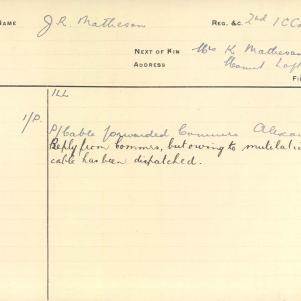 NAME J. R. Matheson REG. &C. 2nd I C Co
NEXT OF KIN Mrs K. Matheson
ADDRESS Mount Loft
FI
ILL
I/P. P/Cable forwarded Commrs Alexa
Reply from Commrs, but owing to mutilati
cable has been dispatched.